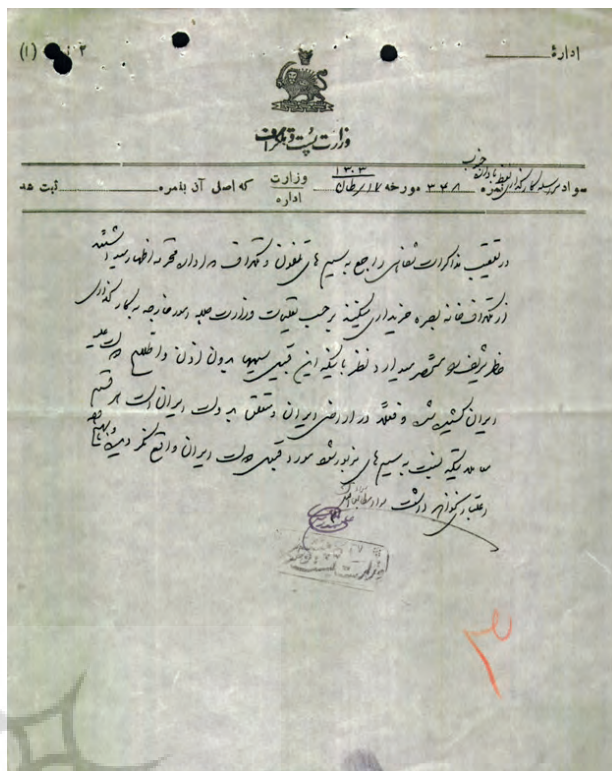 ادارهٔ
(۱)
وزارت پست و تلگراف
سواد مراسله کارگذاری بنادر جنوب
نمره ۳۴۸ مورخه ۱۷ سرطان ۱۳۰۳ وزارت اداره که اصل آن بنمره ثبت شد
در تعقیب مذاکرات شفاهی راجع به سیم های تلفون و تلگراف که اداره محترم اظهار میدارد
از تلگرافخانه بصره خریداری میکنند بر حسب تعلیمات وزارت جلیله امور خارجه کارگذاری
خاطر شریف را مستحضر میدارد نظر باینکه این قبیل سیمها بدون اذن و اطلاع دولت علیه
ایران کشیده شده و فعلا در اراضی ایران و متعلق به دولت ایران است هر قسم
معامله نسبت به سیم های مزبور شود مورد قبول دولت ایران واقع نگردیده
و اعتبار نخواهد داشت سواد مطابق اصل است
۳